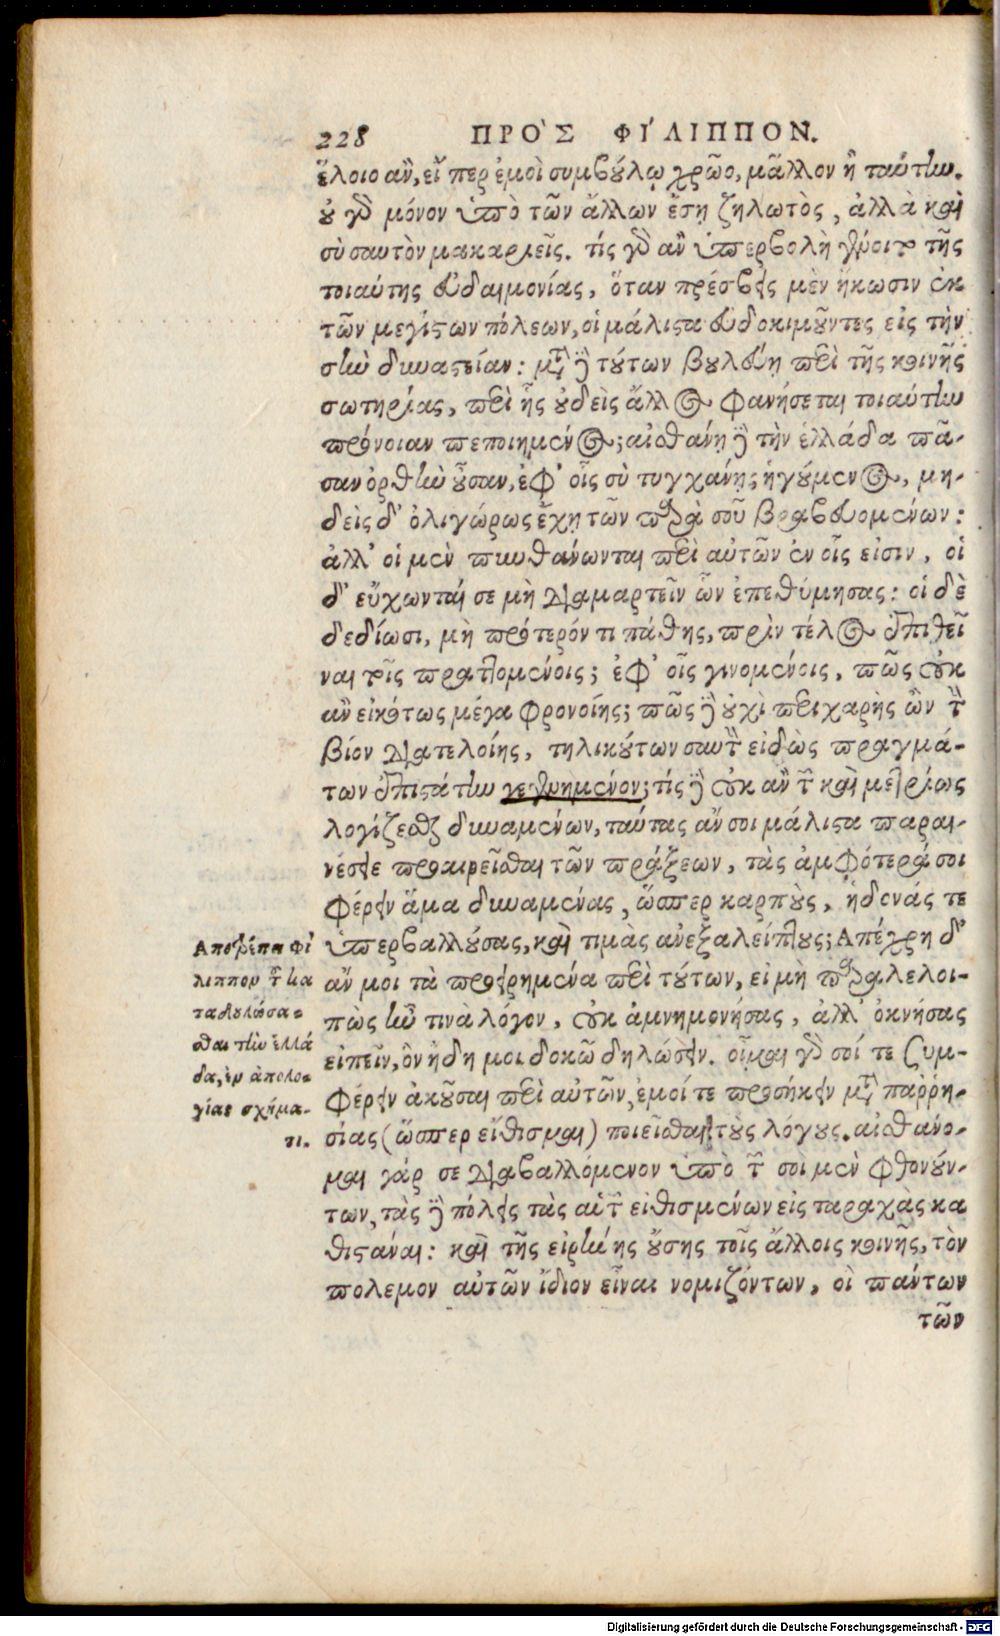 228 ΠΡΟ῀Σ ΦΙ΄ΛΙΠΠΟΝ.
ἕλοιο ἂν, εἴ περ ἐμοὶ συμβούλῳ χρῷο, μᾶλλον ἢ ταύτην.
οὐ γὰρ μόνον ὑπὸ τῶν ἄλλων ἔσῃ ζηλωτὸς, ἀλλὰ καὶ
σὺ σαυτὸν μακαριεῖς. τίς γὰρ ἂν ὑπερβολὴ γένοιτο τῆς
τοιαύτης εὐδαιμονίας, ὅταν πρέσβεις μὲν ἥκωσιν ἐκ
τῶν μεγίστων πόλεων, οἱ μάλιστα εὐδοκιμοῦντες εἰς τὴν
σὴν δυναστείαν: μετὰ δὲ τούτων βουλεύῃ περὶ τῆς κοινῆς
σωτηρίας, περὶ ἧς οὐδεὶς ἄλλος φανήσεται τοιαύτην
πρόνοιαν πεποιημένος; αἰσθάνῃ δὲ τὴν ἑλλάδα πᾶ-
σαν ὀρθὴν οὖσαν, ἐφ' οἷς σὺ τυγχάνῃς ἡγούμενος, μη-
δεὶς δ' ὀλιγώρως ἔχῃ τῶν παρὰ σοῦ βραβευομένων:
ἀλλ' οἱ μὲν πυνθάνωνται περὶ αὐτῶν ἐν οἷς εἰσιν, οἱ
δ' εὔχωνταί σε μὴ διαμαρτεῖν ὧν ἐπεθύμησας: οἱ δὲ
δεδίωσι, μὴ πρότερόν τι πάθης, πρὶν τέλος ἐπιθεῖ
ναι τοῖς πραττομένοις; ἐφ' οἷς γινομένοις, πῶς οὐκ
ἂν εἰκότως μέγα φρονοίης; πῶς δὲ οὐχὶ περιχαρὴς ὢν τὸν
βίον διατελοίης, τηλικούτων σαυτὸν εἰδὼς πραγμά-
των ἐπιστάτην γεγενημένον; τίς δὲ οὐκ ἂν τῶν καὶ μετρίως
λογίζεσθαι δυναμένων, ταύτας ἄν σοι μάλιστα παραι-
νέσειε προαιρεῖσθαι τῶν πράξεων, τὰς ἀμφότερά σοι
φέρειν ἅμα δυναμένας, ὥσπερ καρποὺς, ἡδονάς τε
ὑπερβαλλούσας, καὶ τιμὰς ἀνεξαλείπτους; Ἀπέχρη δ'
ἄν μοι τὰ προειρημένα περὶ τούτων, εἰ μὴ παραλελοι-
πὼς ἦν τινὰ λόγον, οὐκ ἀμνημονήσας, ἀλλ' ὀκνήσας
εἰπεῖν, ὃν ἤδη μοι δοκῶ δηλώσειν. οἶμαι γὰρ σοί τε συμ-
φέρειν ἀκοῦσαι περὶ αὐτῶν, ἐμοί τε προσήκειν μετὰ παῤῥη-
σίας (ὥσπερ εἴθισμαι) ποιεῖσθαι τοὺς λόγους. αἰσθάνο-
μαι γάρ σε διαβαλλόμενον ὑπὸ τῶν σοι μὲν φθονούν-
των, τὰς δὲ πόλεις τὰς αὑτῶν εἰθισμένων εἰς ταραχὰς κα
θιστάναι: καὶ τῆς εἰρήνης οὔσης τοῖς ἄλλοις κοινῆς, τὸν
πόλεμον αὐτῶν ἴδιον εἶναι νομιζόντων, οἱ πάντων
τῶν
Ἀποτρέπει φί
λιππον τοῦ κα
ταδουλώσα-
σθαι τὴν ἑλλά
δα, ἐν ἀπολο-
γίας σχήμα-
τι.
Digitalisierung gefördert durch die Deutsche Forschungsgemeinschaft - DFG